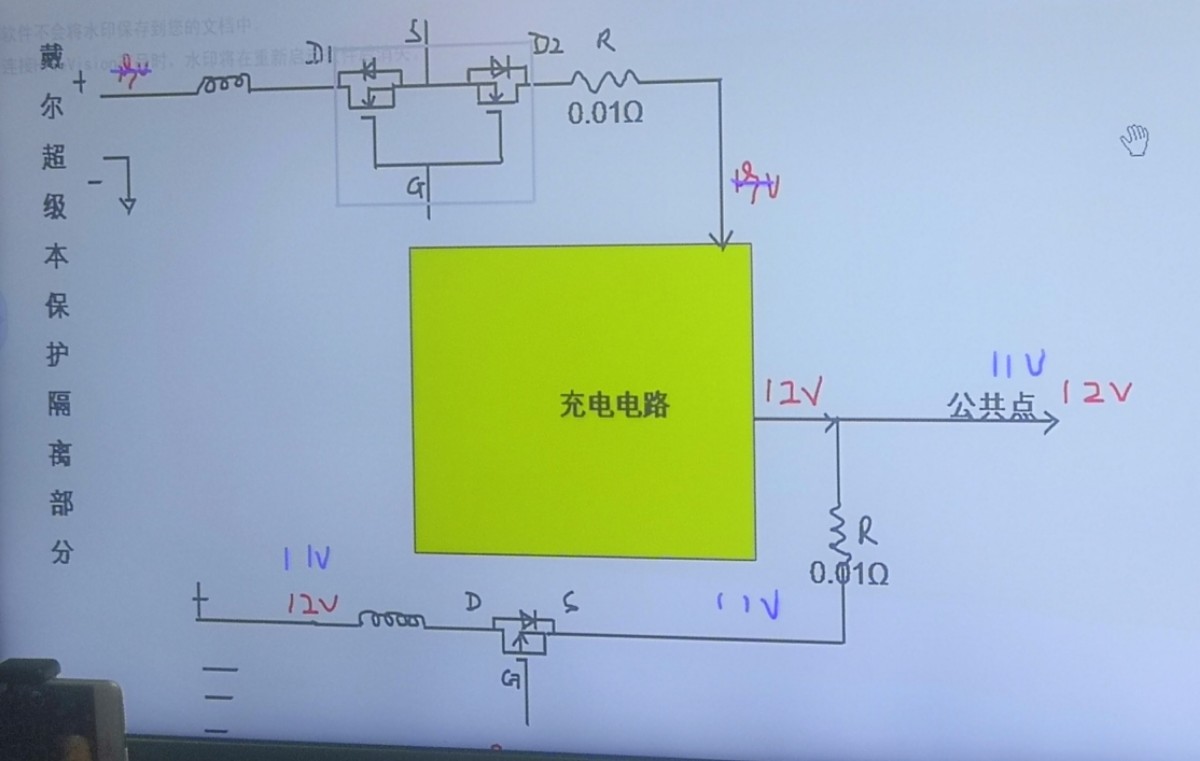 软件不会将水印保存到您的文档中.
戴尔超级本保护隔离部分
S
D1
D2
R
+
0.01Ω
-
G
充电电路
12V
11V
公共点
12V
R
0.01Ω
11V
+
12V
D
S
11V
G